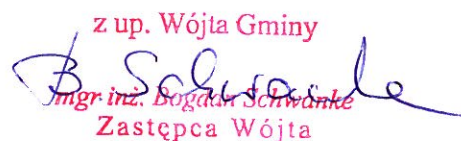 z up. Wójta Gminy
B Schwanke
mgr inż. Bogdan Schwanke
Zastępca Wójta